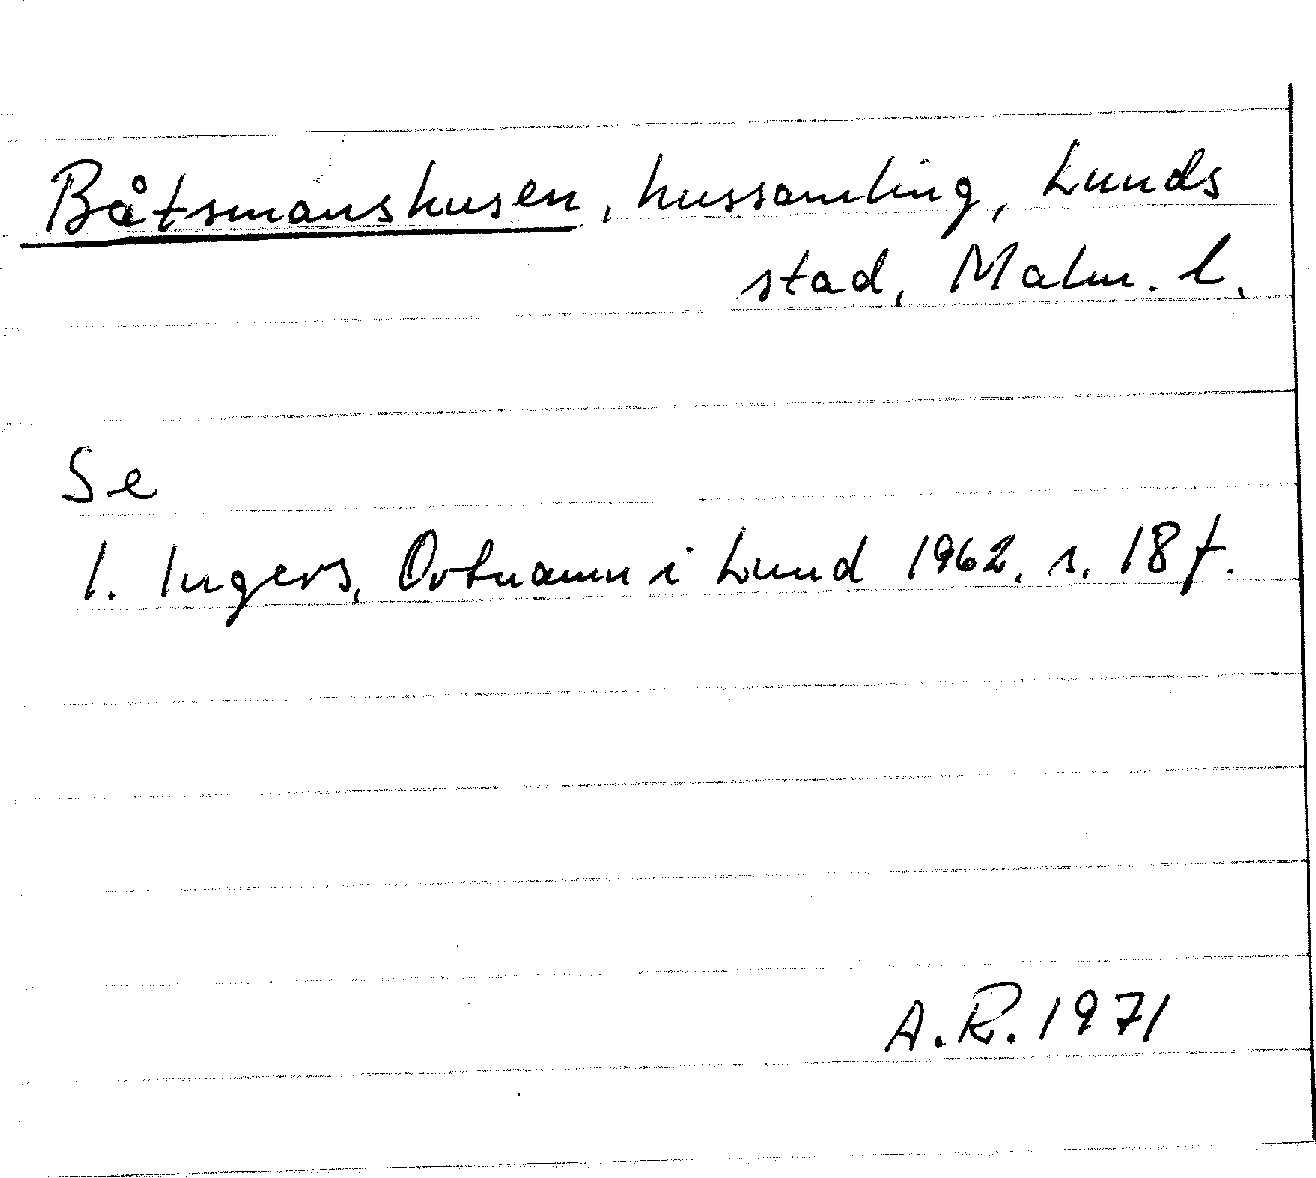 Båtsmanshusen, hussamling, Lunds
stad, Malm. l.
Se
I. Ingers, Ortnamn i Lund 1962. s. 18 f.
A.R. 1971